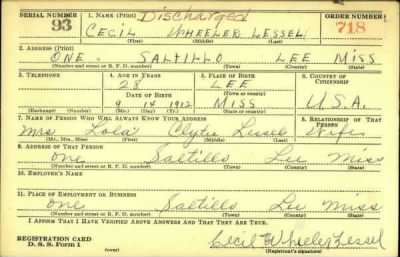 SERIAL NUMBER 1. NAME (Print) Discharged ORDER NUMBER
93 CECIL WHEELER LESSEL 718
(First) (Middle) (Last)
2. ADDRESS (Print)
ONE SALTILLO LEE MISS
(Number and street or R. F. D. number) (Town) (County) (State)
3. TELEPHONE 4. AGE IN YEARS 5. PLACE OF BIRTH 6. COUNTRY OF CITIZENSHIP
28 LEE
(Town or county)
DATE OF BIRTH
9 14 1912 MISS U.S.A.
(Exchange) (Number) (Mo.) (Day) (Yr.) (State or country)
7. NAME OF PERSON WHO WILL ALWAYS KNOW YOUR ADDRESS 8. RELATIONSHIP OF THAT PERSON
Mrs Lola Clytee Lessel Wife
(Mr., Mrs., Miss) (First) (Middle) (Last)
9. ADDRESS OF THAT PERSON
One Saltillo Lee Miss
(Number and street or R. F. D. number) (Town) (County) (State)
10. EMPLOYER'S NAME
11. PLACE OF EMPLOYMENT OR BUSINESS
One Saltillo Lee Miss
(Number and street or R. F. D. number) (Town) (County) (State)
I AFFIRM THAT I HAVE VERIFIED ABOVE ANSWERS AND THAT THEY ARE TRUE.
REGISTRATION CARD
D. S. S. Form 1 Cecil Wheeler Lessel
(over) (Registrant's signature)